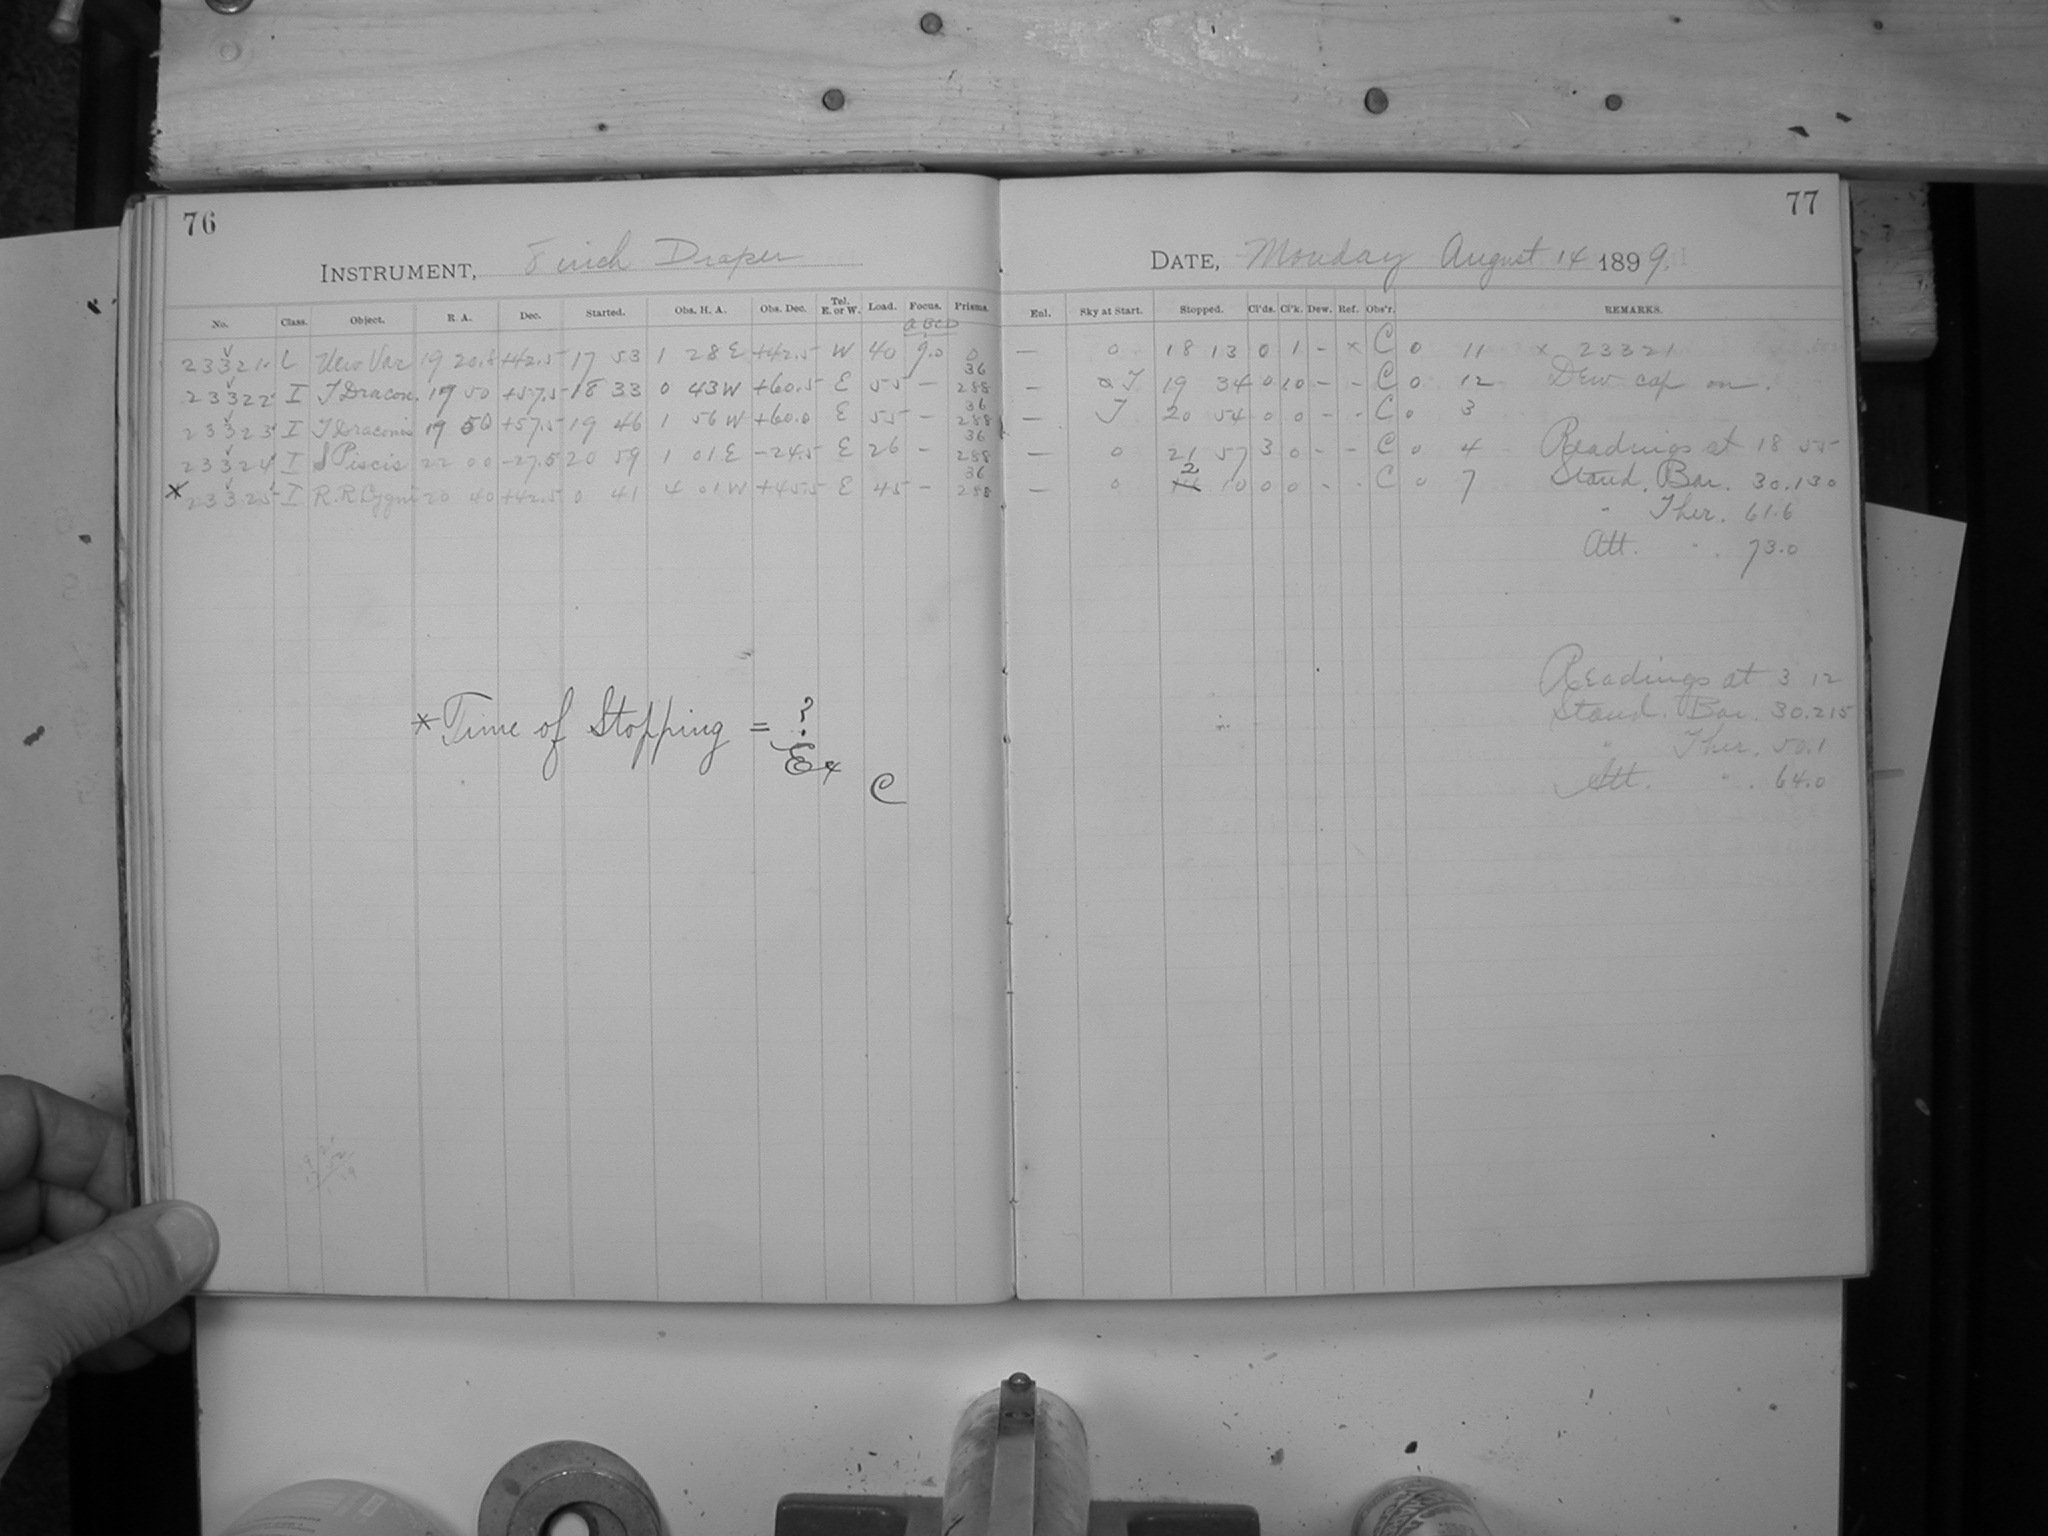 76
INSTRUMENT, 8 inch Draper
No. Class. Object. R. A. Dec. Started. Obs. H. A. Obs. Dec. Tel. E. or W. Load. Focus. Prisms.
ABCD
23321 L New Var 19 20.8 +42.5 17 53 1 28 E +42.5 W 40 9.0 0
23322 I T Dracon. 19 50 +57.5 18 33 0 43 W +60.5 E 55 – 36 288
23323 I T Draconis 19 50 +57.5 19 46 1 56 W +60.0 E 55 – 36 288
23324 I S Piscis 22 00 -27.5 20 59 1 01 E -24.5 E 26 – 36 288
* 23325 I R.R. Cygni 20 40 +42.5 0 41 4 01 W +45.5 E 45 – 36 288
* Time of Stopping = ?
Ex
C
77
DATE, Monday August 14 1899.
Enl. Sky at Start. Stopped. Cl'ds. Cl'k. Dew. Ref. Obs'r. REMARKS.
— 0 18 13 0 1 – × C 0 11 × 23321
— T 19 34 0 10 – – C 0 12 Dew cap on.
— T 20 54 0 0 – – C 0 3
— 0 21 57 3 0 – – C 0 4 Readings at 18 55
— 0 2 10 0 0 – – C 0 7 Stand. Bar. 30.130
" Ther. 61.6
Att. " 73.0
Readings at 3 12
Stand. Bar. 30.215
" Ther. 50.1
Att. " 64.0